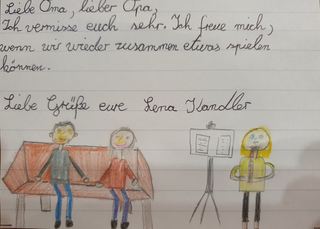 Liebe Oma, lieber Opa,
Ich vermisse euch sehr. Ich freue mich,
wenn wir wieder zusammen etwas spielen
können.
Liebe Grüße eure Lena Kandler